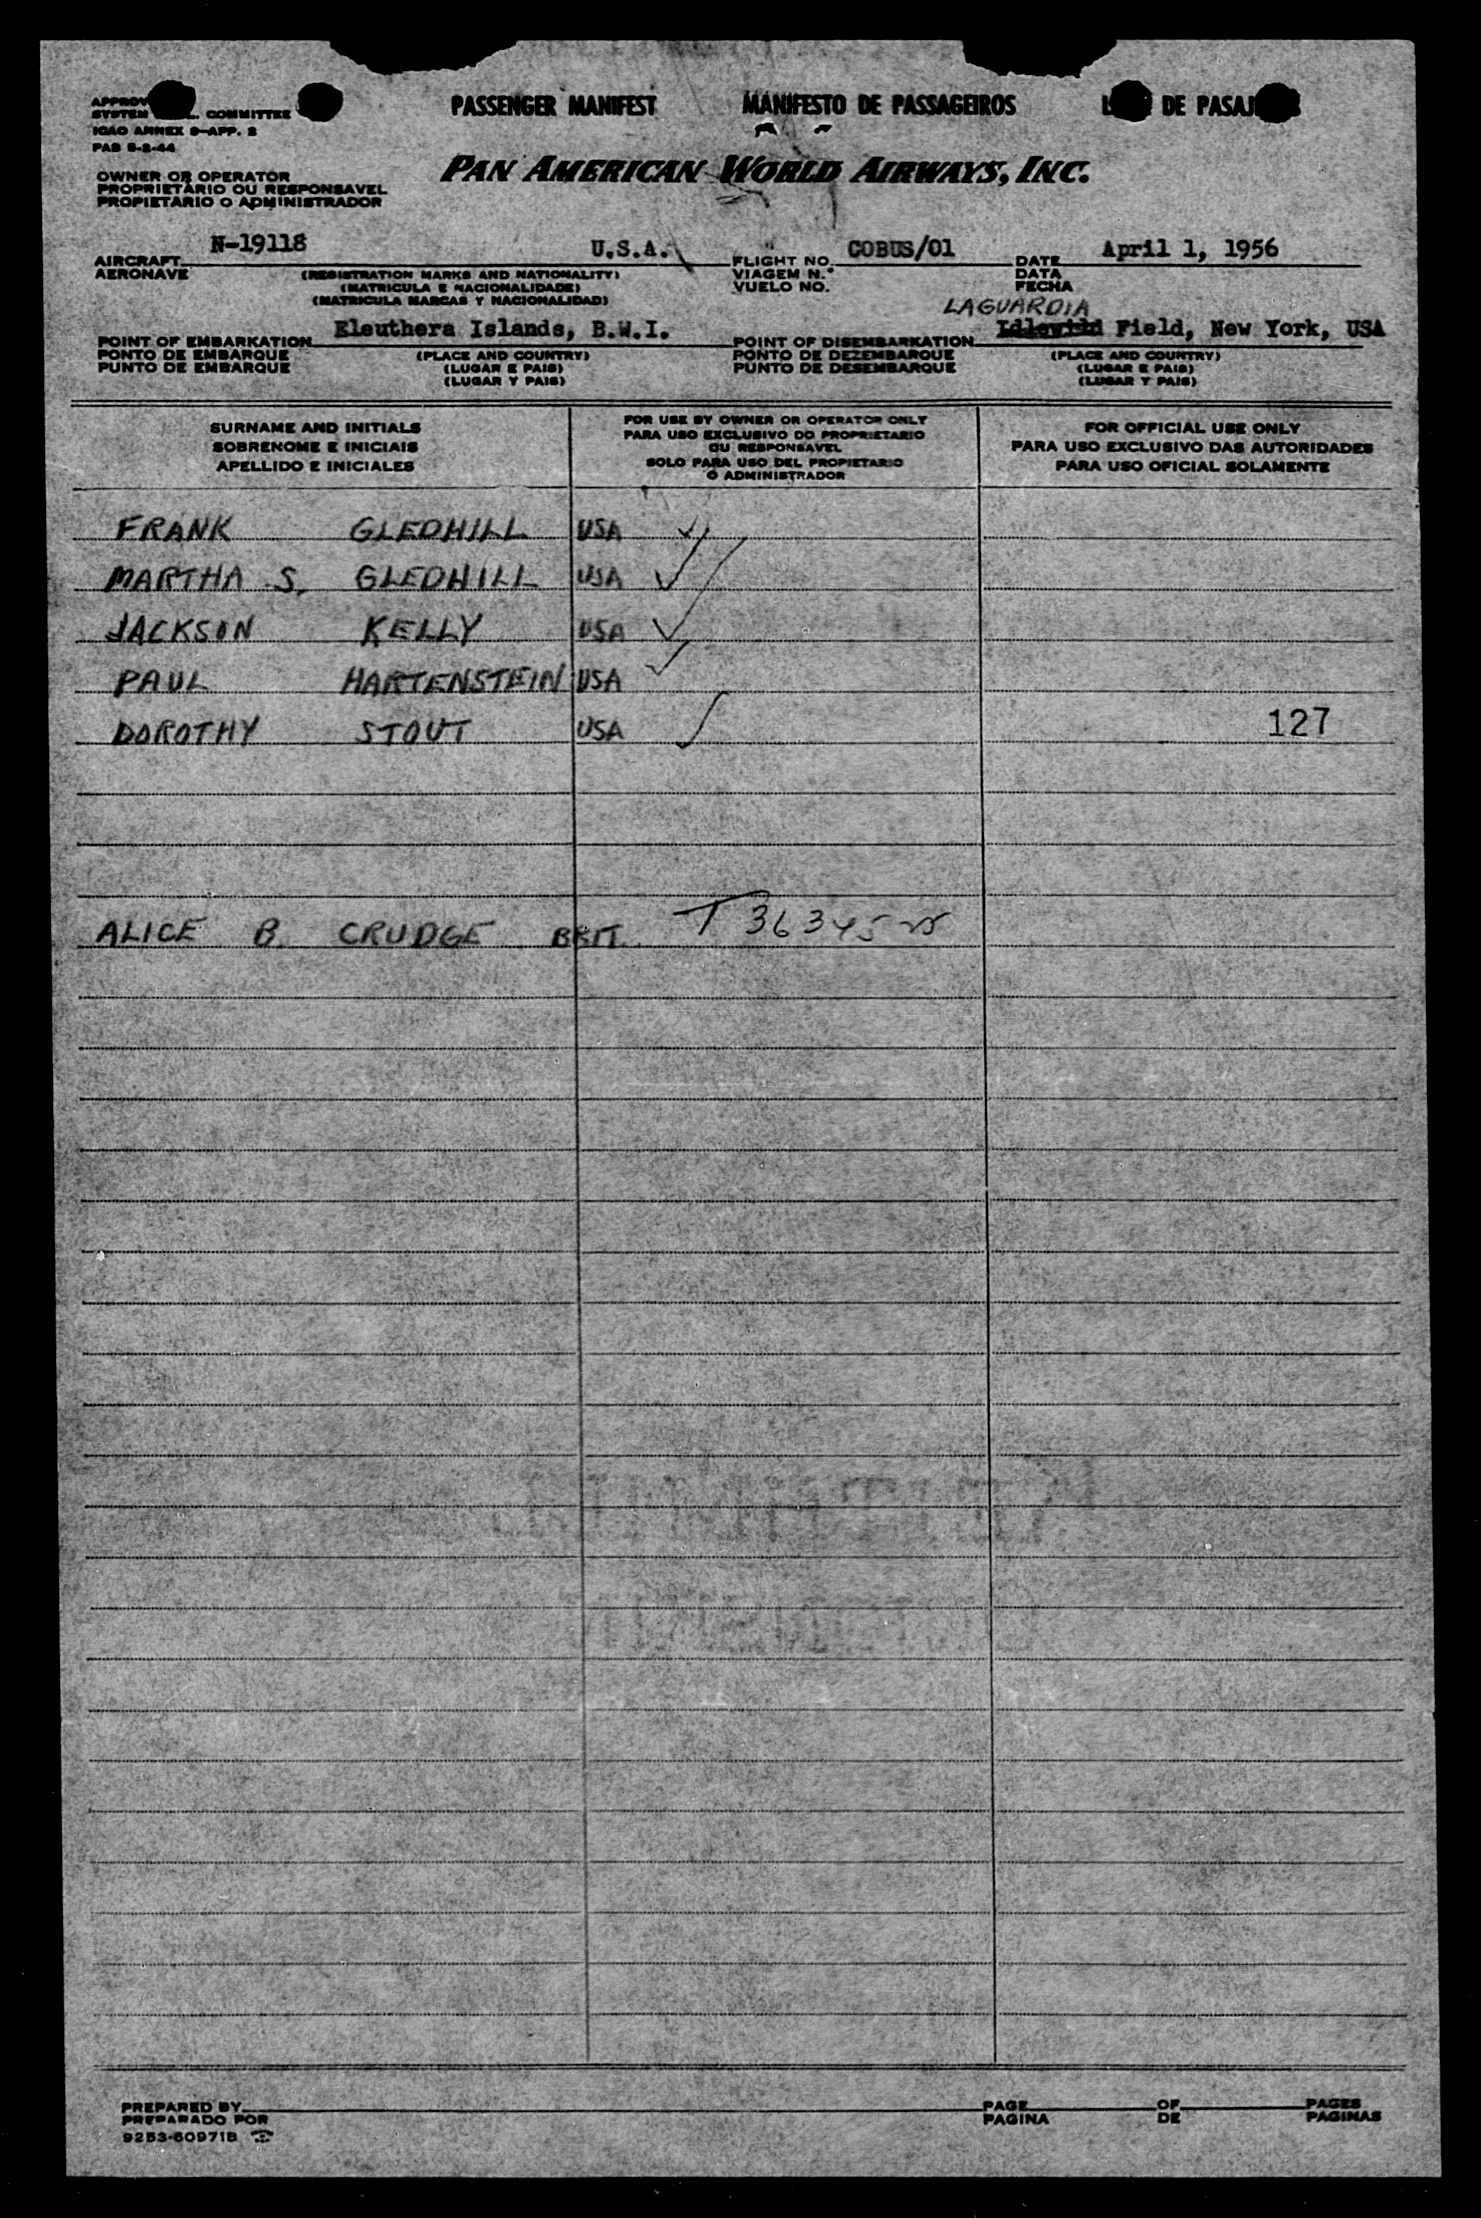 PASSENGER MANIFEST MANIFESTO DE PASSAGEIROS DE
COMMITTEE
SYSTEM
ICAO ANNEX 9-APP. 2
PAB 5-2-44
PAN AMERICAN WORLD AIRWAYS, INC.
OWNER OR OPERATOR
PROPRIETARIO OU RESPONSAVEL
PROPIETARIO O ADMINISTRADOR
AIRCRAFT N-19118 U.S.A. FLIGHT NO. COBUS/01 DATE April 1, 1956
AERONAVE (REGISTRATION MARKS AND NATIONALITY) VIAGEM N.° DATA
(MATRICULA E NACIONALIDADE) VUELO NO. FECHA
(MATRICULA MARCAS Y NACIONALIDAD)
LAGUARDIA
POINT OF EMBARKATION Eleuthera Islands, B.W.I. POINT OF DISEMBARKATION Idlewild Field, New York, USA
PONTO DE EMBARQUE (PLACE AND COUNTRY) PONTO DE DEZEMBARQUE (PLACE AND COUNTRY)
PUNTO DE EMBARQUE (LUGAR E PAIS) PUNTO DE DESEMBARQUE (LUGAR E PAIS)
(LUGAR Y PAIS) (LUGAR Y PAIS)
SURNAME AND INITIALS
SOBRENOME E INICIAIS
APELLIDO E INICIALES
FOR USE BY OWNER OR OPERATOR ONLY
PARA USO EXCLUSIVO DO PROPRIETARIO
OU RESPONSAVEL
SOLO PARA USO DEL PROPIETARIO
O ADMINISTRADOR
FOR OFFICIAL USE ONLY
PARA USO EXCLUSIVO DAS AUTORIDADES
PARA USO OFICIAL SOLAMENTE
FRANK GLEDHILL USA
MARTHA S. GLEDHILL USA
JACKSON KELLY USA
PAUL HARTENSTEIN USA
DOROTHY STOUT USA 127
ALICE B. CRUDGE BRIT.
PREPARED BY PAGE OF PAGES
PREPARADO POR PAGINA DE PAGINAS
9253-60971B